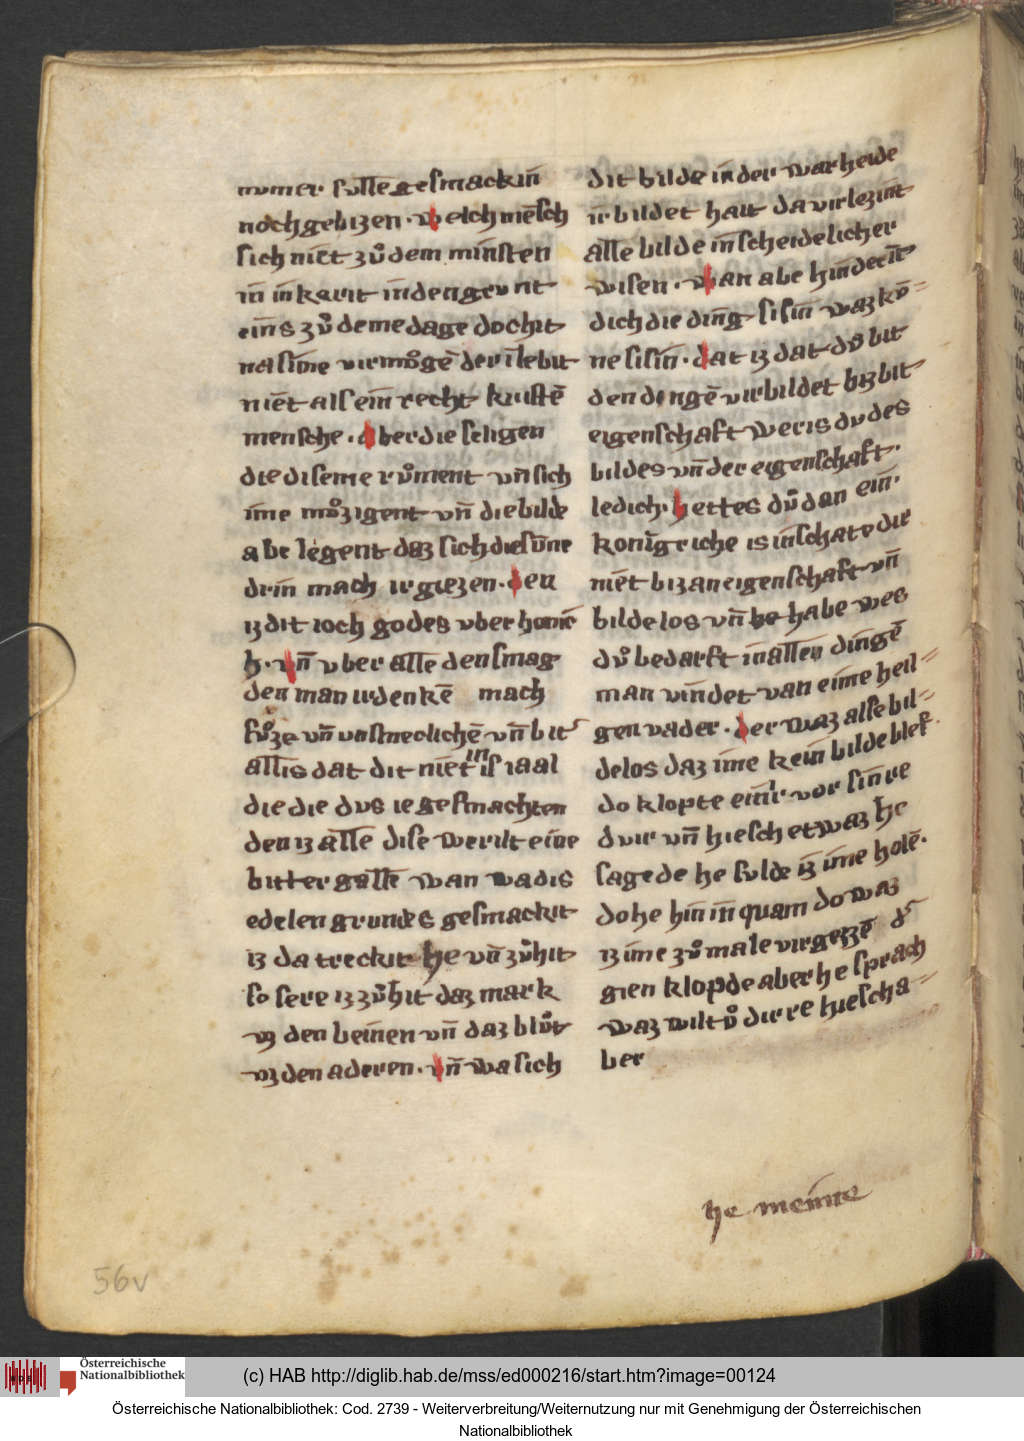 numer sulle gesmackin
noch gebizen · welch mēsch
sich niet zů dem minsten
in inkarit inden grunt
eins zů deme dage doch it
na sime virmůgē der ilebit
niēt als ein recht kristē
mensche · aber die seligen
die diseme růment vn̄ sich
ime můzigent vn̄ die bilde
abe legent daz sich die sūne
drin mach irgiezen · den
iz dit ioch godes vber honic
h · vn̄ vber alle den smag
den man irdenkē mach
sůze vn̄ vnsmeclichē vn̄ bit
allis dat dit niēt in is ia al
die die dus ie gesmachten
den iz alle dise werilt eine
bitter galle wan wa dis
edelen grundes gesmackit
iz da treckit he vn̄ zůhit
so sere iz zůhit daz mark
vz den beinen vn̄ daz blůt
vz den aderen · vn̄ wa sich
dit bilde in der warheide
irbildet hait da virlezint
alle bilde in scheidelicher
wisen · wan abe hinderit
dich die ding si sin waz kv̄
ne si sin · dat iz dat dů bit
den dingē virbildet biz bit
eigenschaft wer is du des
bildes vn̄ der eigenschaft ·
ledich · hettes dů dan ein ·
konigriche is in schate dir
niēt biz an eigenschaft vn̄
bilde los vn̄ habe wes
dů bedarft in allen dingē
man vindet van eime heil
gen vader · der waz alse bil
delos daz ime kein bilde bleif
do klopte einir vor sinre
dvir vn̄ hiesch etwaz he
sagede he sulde iz ime holē ·
do he hin in quam do waz
iz ime zů male virgezzē d
gien klopde aber he sprach
waz wiltů dirre hiescha
ber
he meinte
56v
Österreichische
Nationalbibliothek
(c) HAB http://diglib.hab.de/mss/ed000216/start.htm?image=00124
Österreichische Nationalbibliothek: Cod. 2739 - Weiterverbreitung/Weiternutzung nur mit Genehmigung der Österreichischen
Nationalbibliothek